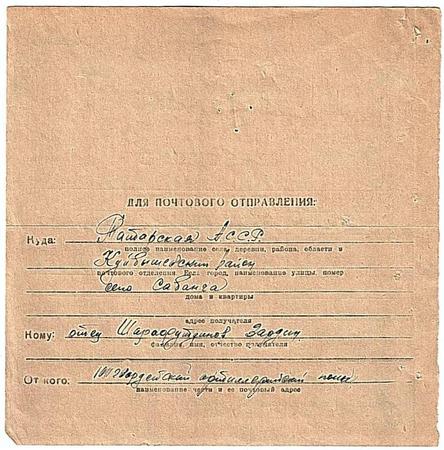 ДЛЯ ПОЧТОВОГО ОТПРАВЛЕНИЯ:
Куда: Татарская А.С.С.Р.
полное наименование села, деревни, района, области и
Куйбышевский район
почтового отделения. Если город, наименование улицы, номер
село Сабанга
дома и квартиры
адрес получателя
Кому: отец Шарафутдинов
фамилия, имя, отчество получателя
От кого: гвардейский артиллерийский полк
наименование части и ее почтовый адрес